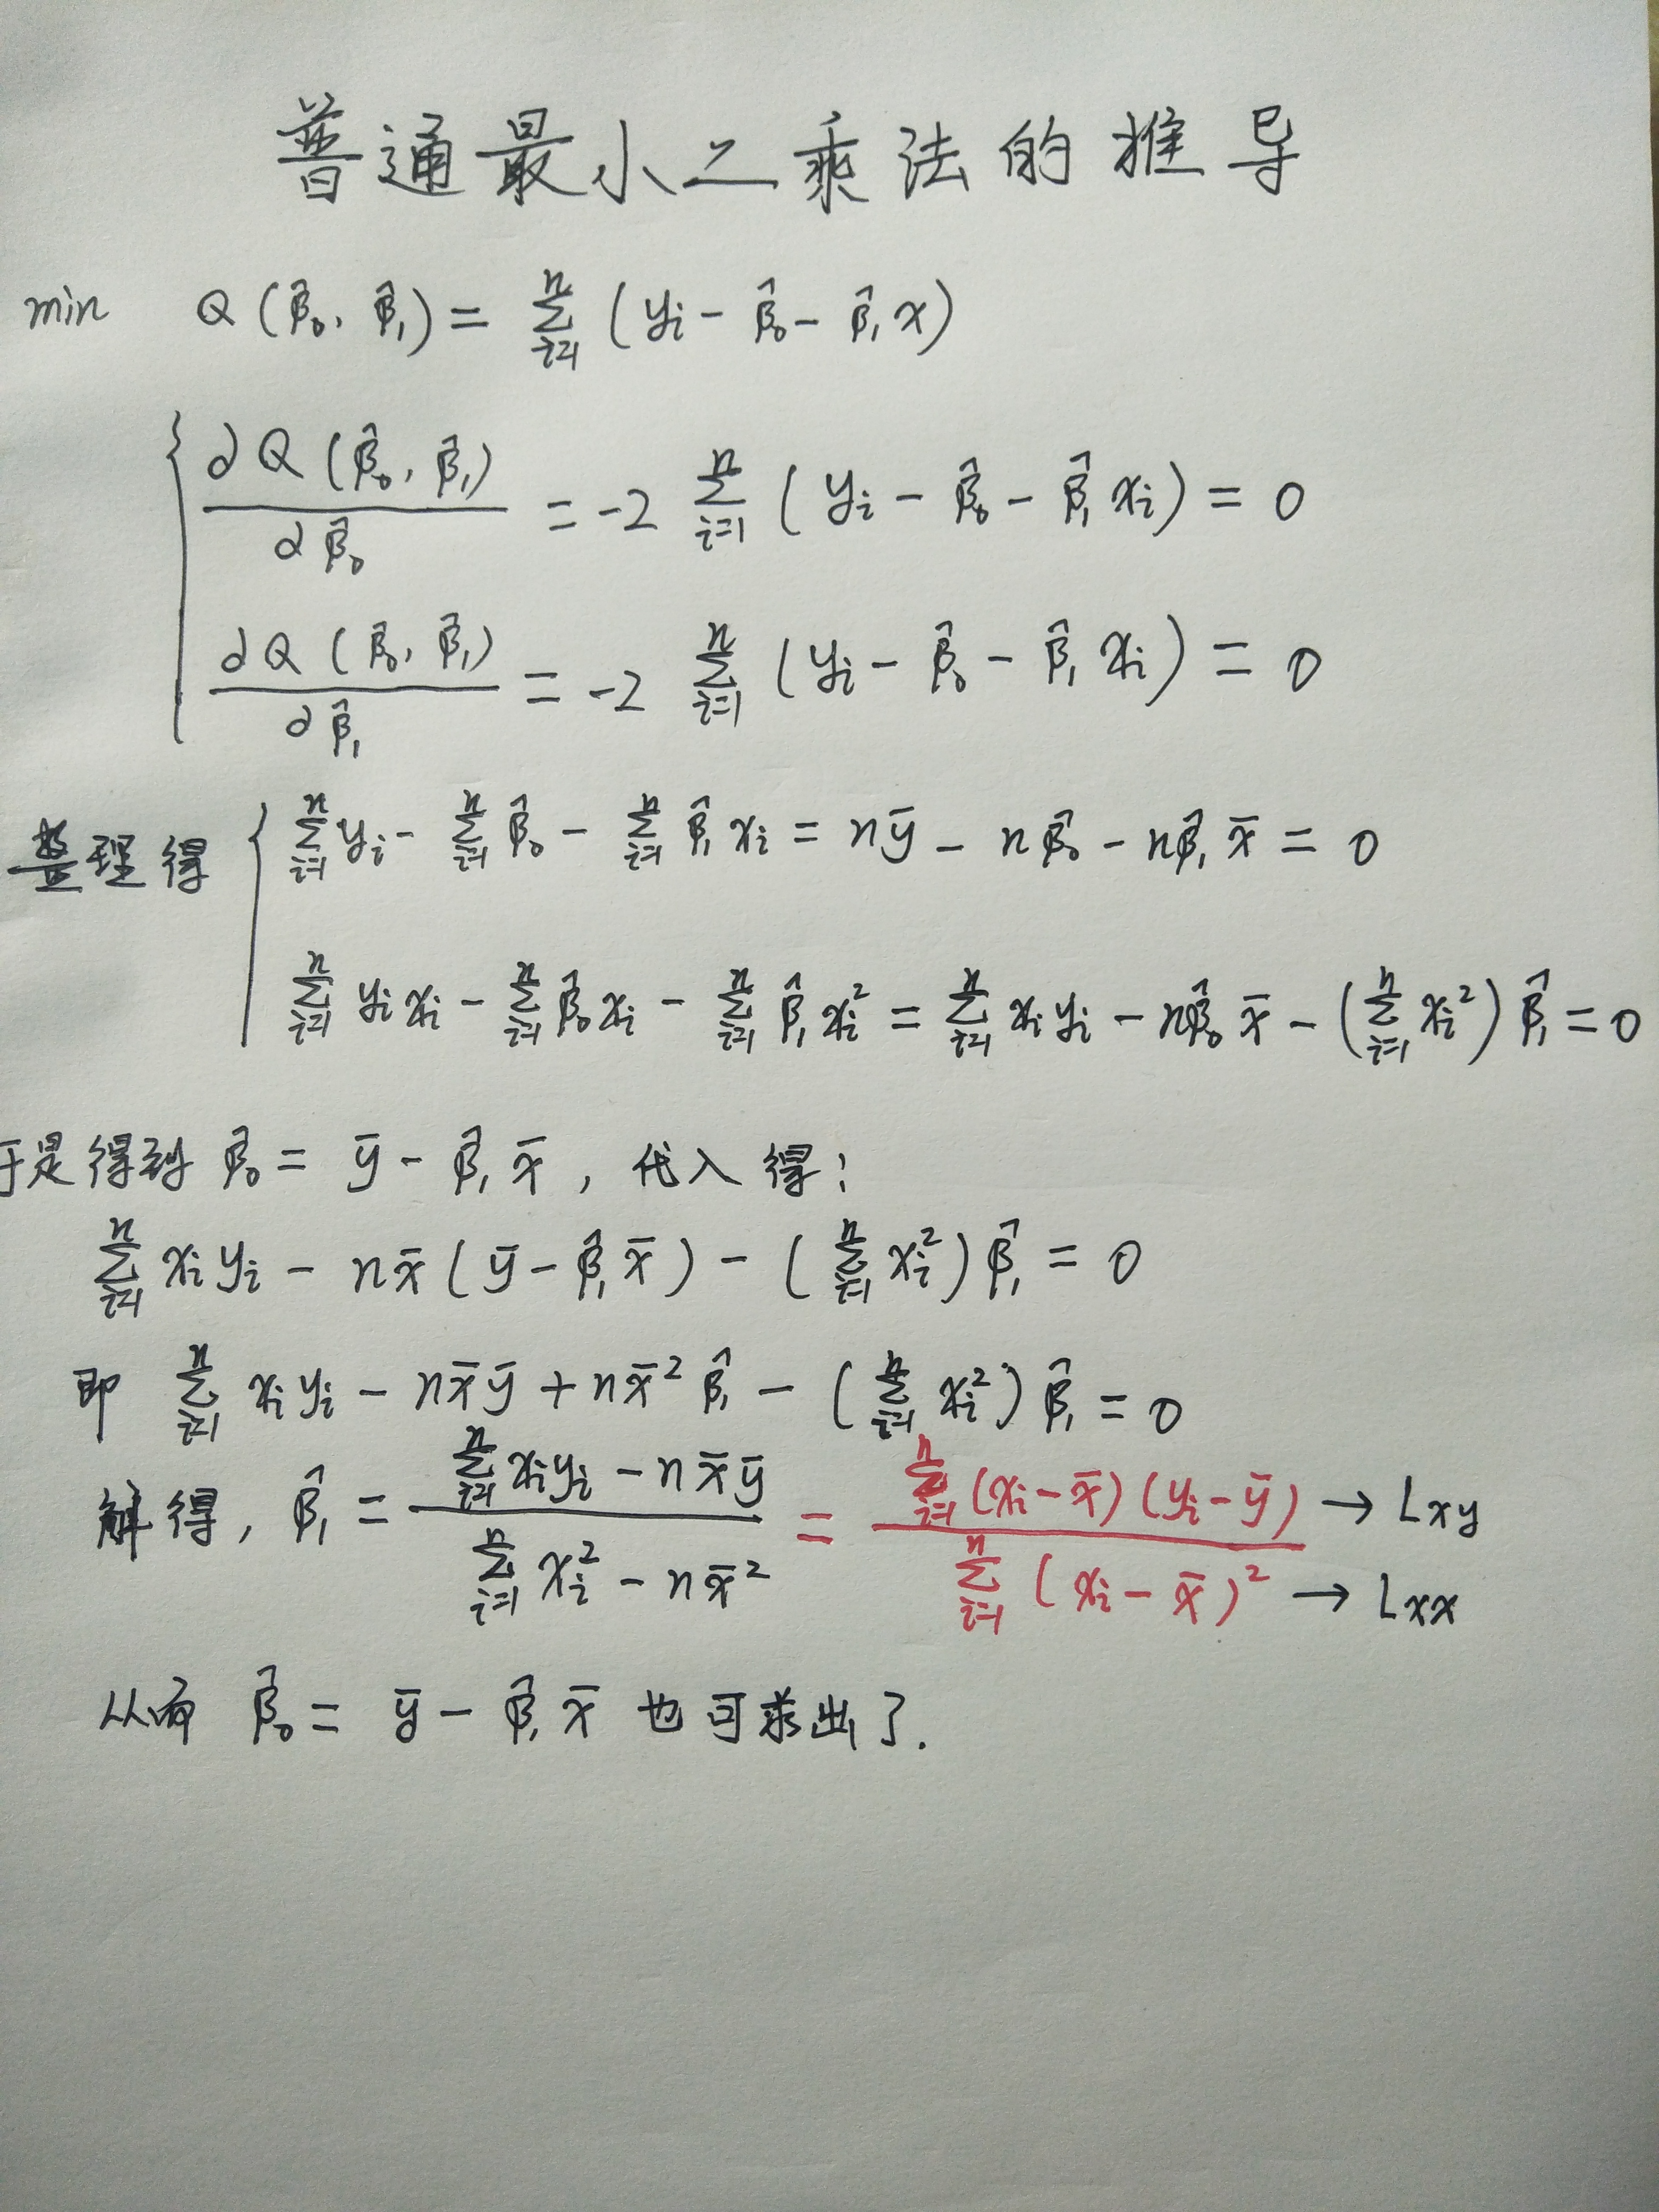 普通最小二乘法的推导
min Q(β̂₀, β̂₁) = ∑ᵢ₌₁ⁿ (yᵢ - β̂₀ - β̂₁x)
{ ∂Q(β̂₀, β̂₁)/∂β̂₀ = -2 ∑ᵢ₌₁ⁿ (yᵢ - β̂₀ - β̂₁xᵢ) = 0
∂Q(β̂₀, β̂₁)/∂β̂₁ = -2 ∑ᵢ₌₁ⁿ (yᵢ - β̂₀ - β̂₁xᵢ) = 0
整理得 { ∑ᵢ₌₁ⁿ yᵢ - ∑ᵢ₌₁ⁿ β̂₀ - ∑ᵢ₌₁ⁿ β̂₁xᵢ = nȳ - nβ̂₀ - nβ̂₁x̄ = 0
∑ᵢ₌₁ⁿ yᵢxᵢ - ∑ᵢ₌₁ⁿ β̂₀xᵢ - ∑ᵢ₌₁ⁿ β̂₁xᵢ² = ∑ᵢ₌₁ⁿ xᵢyᵢ - nβ̂₀x̄ - (∑ᵢ₌₁ⁿ xᵢ²)β̂₁ = 0
于是得到 β̂₀ = ȳ - β̂₁x̄, 代入得:
∑ᵢ₌₁ⁿ xᵢyᵢ - nx̄(ȳ - β̂₁x̄) - (∑ᵢ₌₁ⁿ xᵢ²)β̂₁ = 0
即 ∑ᵢ₌₁ⁿ xᵢyᵢ - nx̄ȳ + nx̄²β̂₁ - (∑ᵢ₌₁ⁿ xᵢ²)β̂₁ = 0
解得, β̂₁ = (∑ᵢ₌₁ⁿ xᵢyᵢ - nx̄ȳ)/(∑ᵢ₌₁ⁿ xᵢ² - nx̄²) = ∑ᵢ₌₁ⁿ(xᵢ - x̄)(yᵢ - ȳ) → Lxy / ∑ᵢ₌₁ⁿ(xᵢ - x̄)² → Lxx
从而 β̂₀ = ȳ - β̂₁x̄ 也可求出了.